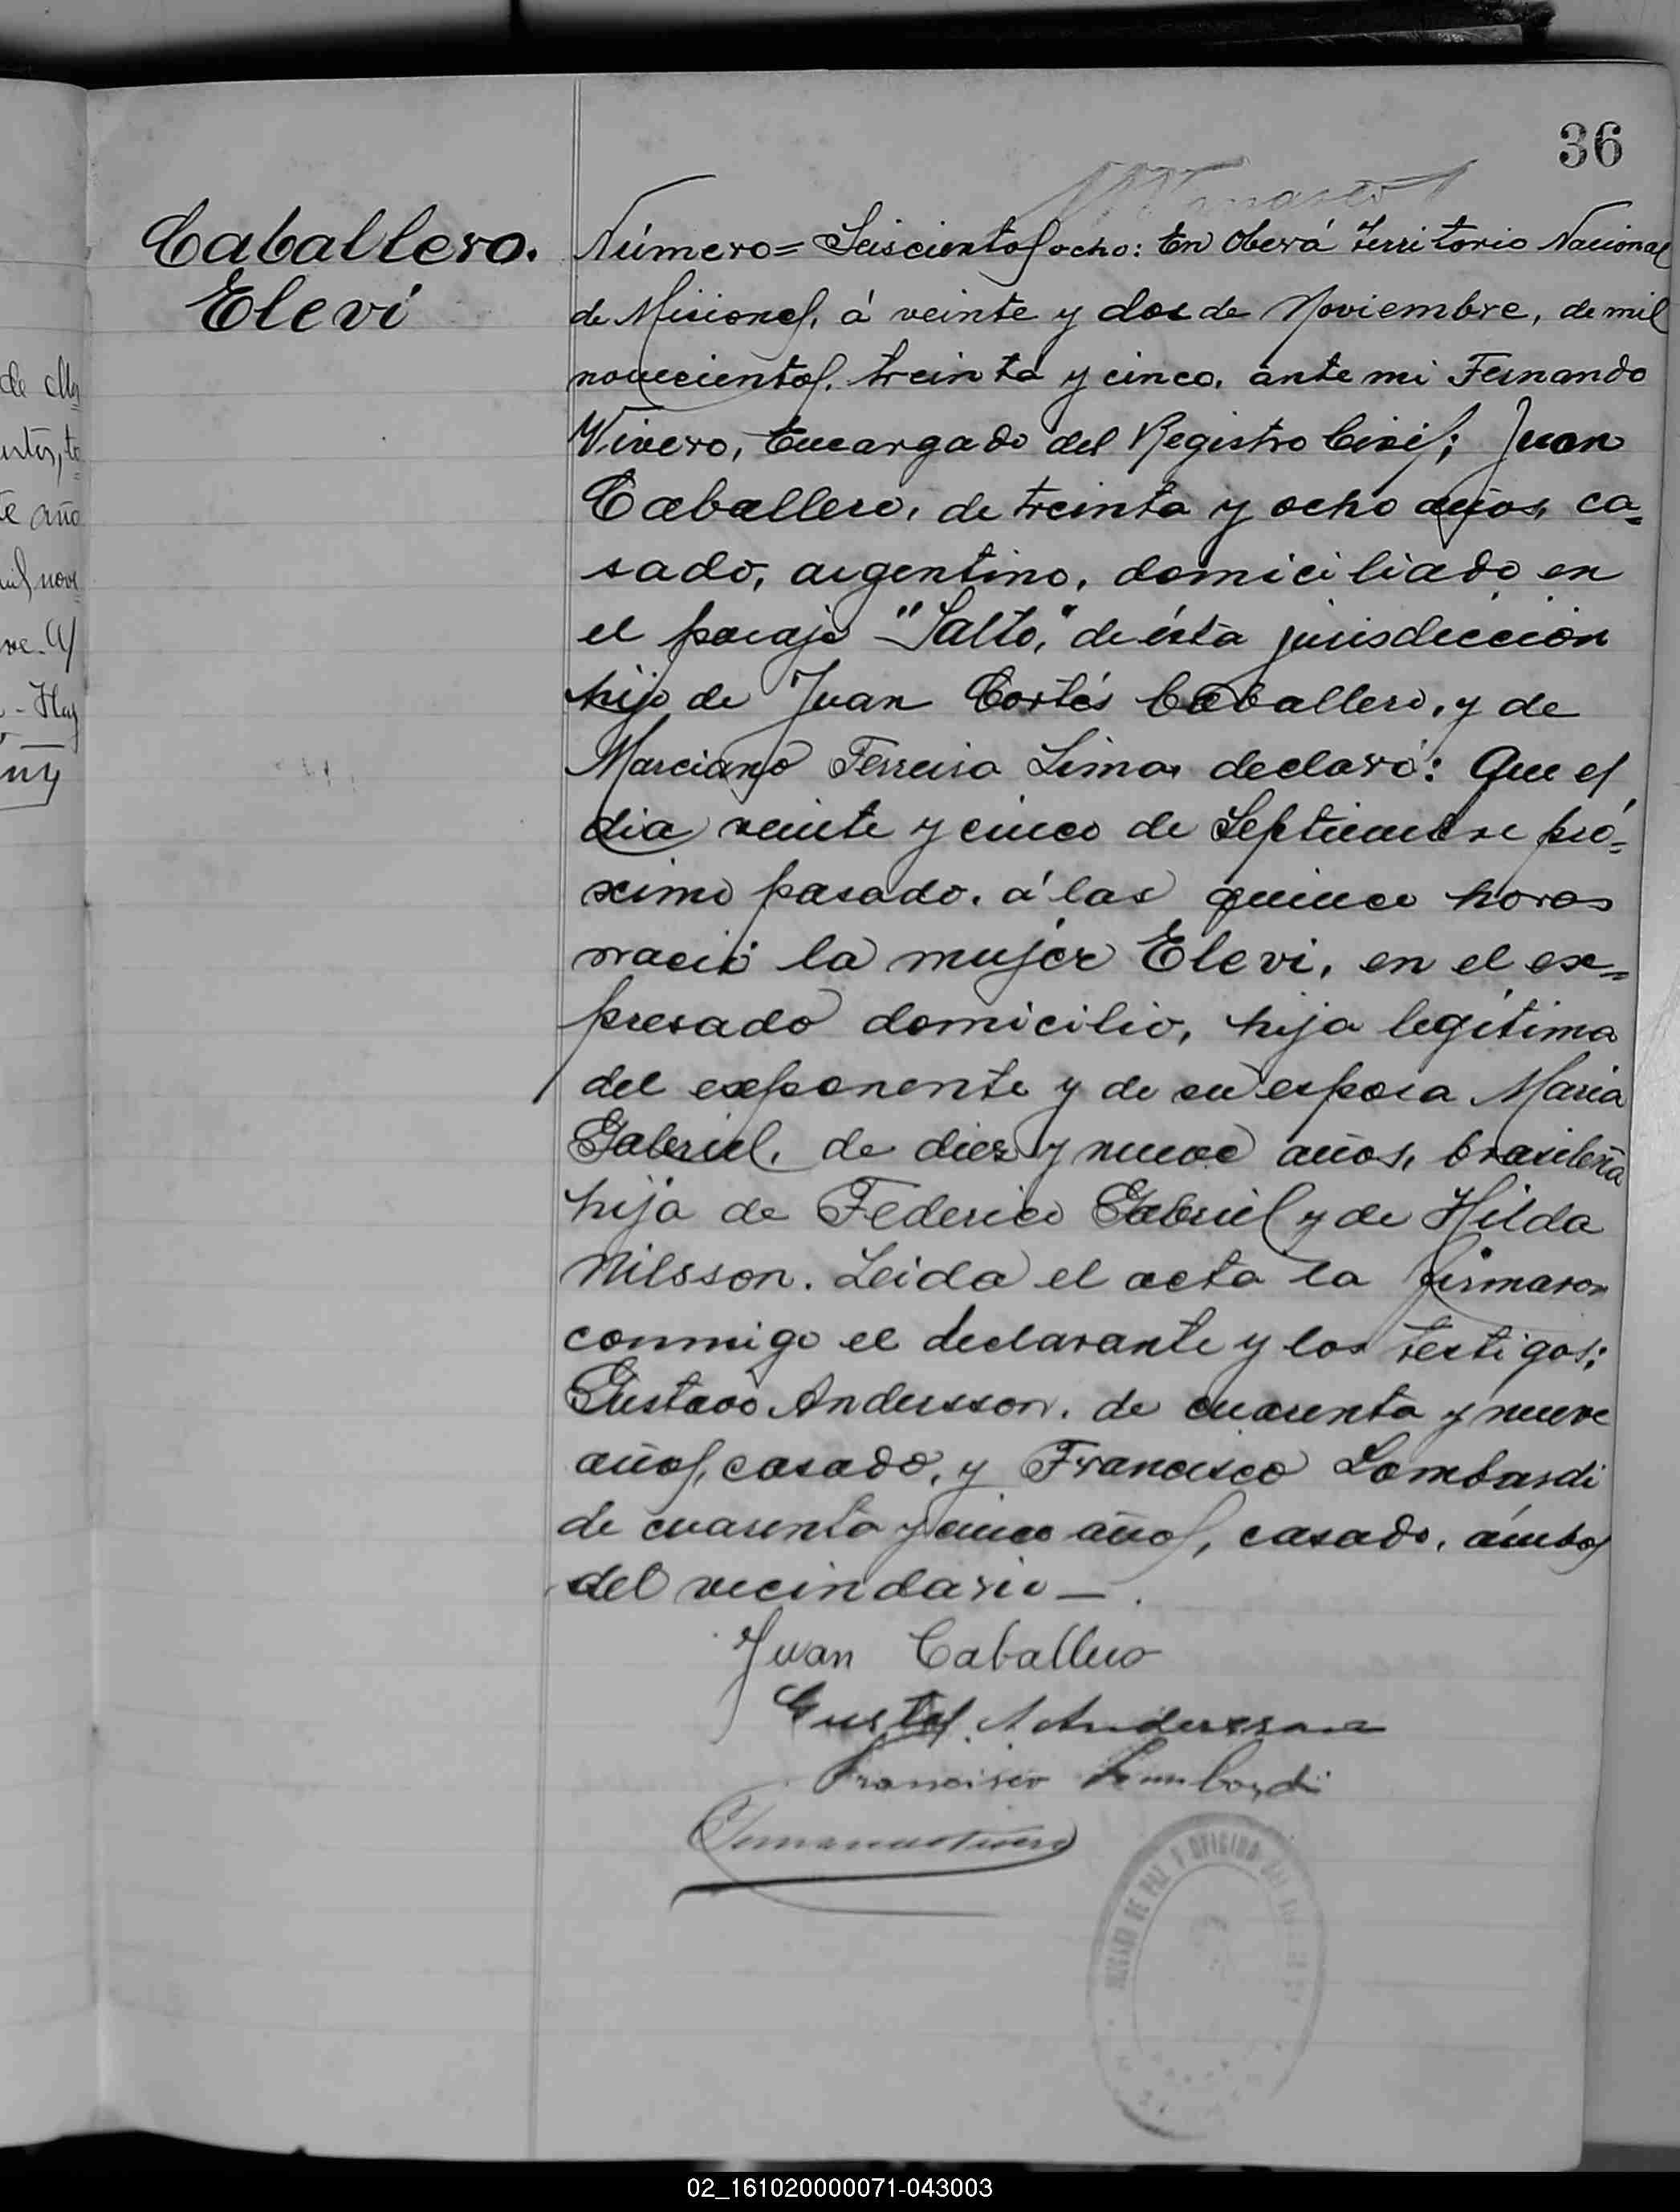 de
entos, te
te año
mil nove
36
Caballero.
Elevi
Número= Seiscientos ocho: En Oberá Territorio Nacional
de Misiones, á veinte y dos de Noviembre, de mil
novecientos, treinta y cinco, ante mi Fernando
Vivero, Encargado del Registro Civil; Juan
Caballero, de treinta y ocho años, ca=
sado, argentino, domiciliado en
el paraje "Salto," de ésta jurisdicción
hijo de Juan Cortés Caballero, y de
Marciano Ferreira Lima, declaró: Que el
dia veinte y cinco de Septiembre pró=
ximo pasado, á las quince horas
nació la mujer Elevi, en el ex=
presado domicilio, hija legítima
del exponente y de su esposa Maria
Gabriel, de diez y nueve años, brasileña
hija de Federico Gabriel y de Hilda
Nilsson. Leida el acta la firmaron
conmigo el declarante y los testigos;
Gustavo Andersson, de cuarenta y nueve
años, casado, y Francisco Lombardi
de cuarenta y cinco años, casado, ámbos
del vecindario —.
Juan Caballero
Gustaf A Andersson
Francisco Lombardi
JUZGADO DE PAZ Y OFICINA DEL
02_161020000071-043003